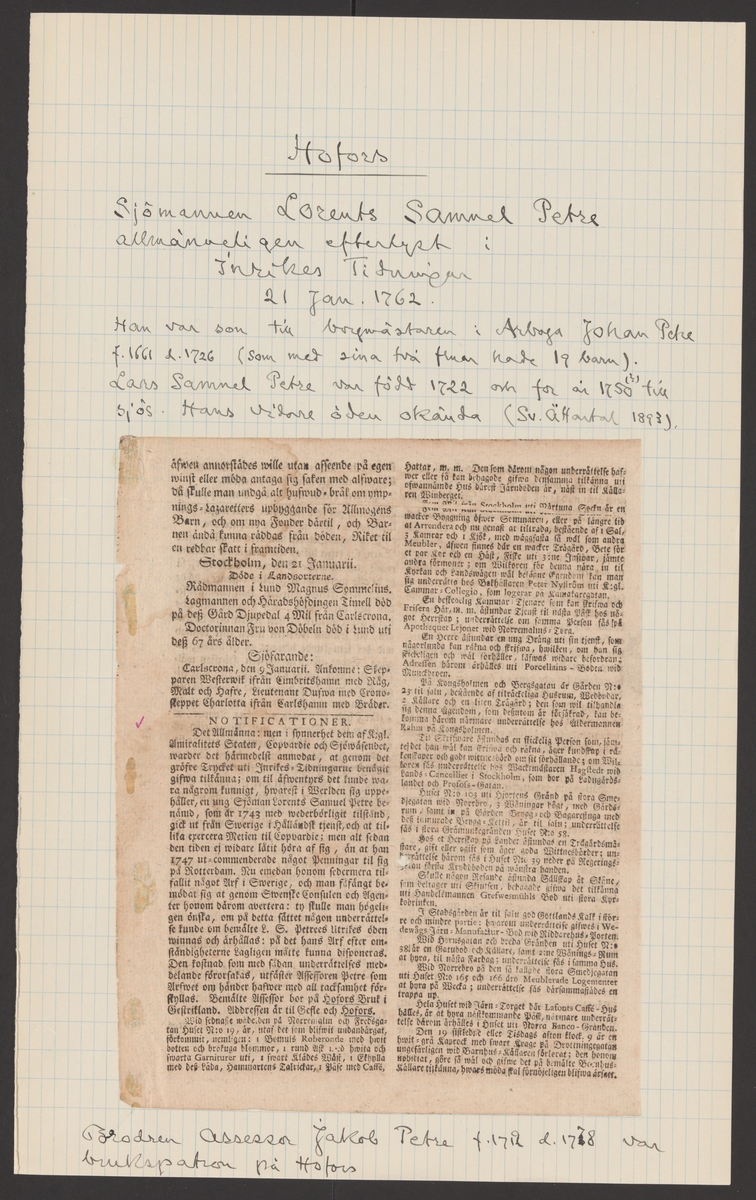 Hofors
Sjömannen Lorents Samuel Petre
allmänneligen efterlyst i
Inrikes Tidningar
21 Jan. 1762.
Han var son till borgmästaren i Arboga Johan Petre
f. 1661 d. 1726 (som med sina två fruar hade 19 barn).
Lars Samuel Petre var född 1722 och for år 1750 (?) till
sjös. Hans vidare öden okända (Sv. Ättartal 1893).
äfwen annorstädes wille utan afseende på egen
winst eller möda antaga sig saken med alfware;
då skulle man undgå alt hufwud-bråk om ymp-
nings-Lazaretters upbyggande för Allmogens
Barn, och om nya Fonder därtil, och Bar-
nen ändå kunna räddas från döden, Riket til
en redbar skatt i framtiden.
Stockholm, den 21 Januarii.
Döde i Landsorterne.
Rådmannen i Lund Magnus Sommelius.
Lagmannen och Häradshöfdingen Timell död
på deß Gård Djupedal 4 Mil från Carlscrona.
Doctorinnan Fru von Döbeln död i Lund uti
deß 67 års ålder.
Sjöfarande:
Carlscrona, den 9 Januarii. Ankomne: Skep-
paren Westerwik ifrån Cimbritshamn med Råg,
Malt och Hafre, Lieutenant Dufwa med Crono-
skeppet Charlotta ifrån Carlshamn med Bräder.
NOTIFICATIONER.
Det Allmänna: men i synnerhet dem af K:gl.
Amiralitets Staten, Copvardie och Sjöwäsendet,
warder det härmedelst anmodat, at genom det
gräfre Trycket uti Inrikes-Tidningarne benägit
gifwa tilkänna; om til äfwentyrs det kunde wa-
ra någrom kunnigt, hwarest i Werlden sig uppe-
håller, en ung Sjöman Lorents Samuel Petre be-
nämd, som år 1743 med wederbörligit tilstånd,
gick ut från Swerige i Hålländsk tjenst, och at til-
lika exercera Metien til Copvardie; men alt sedan
den tiden ej widare låtit höra af sig, än at han
1747 ut-commenderade något Penningar til sig
på Rotterdam. Nu emedan honom sedermera til-
fallit något Arf i Swerige, och man fåfängt be-
mödat sig at genom Swenske Consulen och Agen-
ter honom därom avertera: ty skulle man högeli-
gen önska, om på detta sättet någon underrättel-
se kunde om bemälte L. S. Petrees litrikes öden
winnas och ärhållas: på det hans Arf efter om-
ständigheterne Lagligen måtte kunna disponeras.
Den kostnad, som med sådan underrättelses med-
delande förorsakas, utfäster Assessoren Petre som
Arfwet om händer hafwer med all tacksamhet för-
skyllas. Bemälte Assessor bor på Hofors Bruk i
Gestrikland. Addressen är til Gefle och Hofors.
Wid sednaste wådelden på Norremalm och Fredsga-
tan Huset N:o 19, är, utaf det som blifwit undanbärgat,
förkommit, nemligen: 1 Bomuls Roberonde med hwit
botten och brokuga blommor, 1 rund Ask med hwita och
swarta Garniturer uti, 1 swart Klädes Wäst, 1 Ekhylla
med deß låda, Hammartens Taltrickar, 1 Påse med Caffé,
Hattar, m. m. Den som därom någon underrättelse haf-
wer eller få kan behagade gifwa densamma tilkänna uti
ofwannämde Hus därest Järnboden är, näst in til Källa-
ren Winberget.
wacker Byggning öfwer Sommaren, eller på längre tid
at Arrendera och nu genast at tilträda, bestående af 1 Sal,
3 Kamrar och 1 Kjök, med wäggfasta så wäl som andra
Meubler, äfwen finnes där en wacker Trägård, Bete för
et par Kor och en Häst, Fiske uti 3:ne Insjöar, jämte
andra förmoner; om Wilkoren för denna nära in til
Kyrkan och Landswägen wäl belägne Egendom kan man
sig underrätta hos Bokhållaren Peter Nyström uti K:gl.
Cammar-Collegio, som logerar på Kamakaregatan.
En beskedelig Kammar-Tjenare som kan skrifwa och
Frisera Hår, m. m. åstundar Tjenst til nästa Påsk hos nå-
got Herrskap; underrättelse om samma Person fås på
Apothequet Lejonet wid Norremalms-Torg.
En Herre åstundar en ung Dräng uti sin tjenst, som
någorlunda kan räkna och skrifwa, hwilken, om han sig
skickeligen och wäl förhåller, läfwas widare befordran;
Adressen härom ärhålles uti Porcellains-Boden wid
Munckbron.
På Kongsholmen och Bergsgatan är Gården N:o
23 til saln, bestående af tilräckeliga Husrum, Wedbodar,
2 Källare och en liten Trägård; den som wil tilhandla
sig denna Ägendom, som desutom är försäkrad, kan be-
komma härom närmare underrättelse hos Åldermannen
Rahm på Kongsholmen.
Til Skrifware åstundas en skickelig Person som, jäm-
te det han wäl kan skrifwa och räkna, äger kundskap i rä-
kenskaper och godt wittnesbörd om sit förhållande; om Wil-
koren fås underrättelse hos Wackmästaren Hagstedt wid
Lands-Cancellier i Stockholm, som bor på Ladugårds-
landet och Profoss-Gatan.
Huset N:o 103 uti Hjortens Gränd på stora Sme-
djegatan wid Norrbro, 3 Wåningar högt, med Gårds-
rum, samt in på Gården Brygg- och Bagarestuga med
deß inmurade Brygg-Kettil, är til saln; underrättelse
fås i stora Gråmunkegränden Huset N:o 58.
Hos et Herrskap på Landet åstundas en Trägårdsmä-
stare, gift eller ogift som äger goda Wittnesbörder; un-
derrättelse härom fås i Huset N:o 39 neder på Regerings-
gatan första Kryddboden på wänstra handen.
Skulle någon Resande åstunda Sällskap åt Skåne,
som deltager uti Skjutsen, behagade gifwa det tilkänna
uti Handelsmannen Grefwesmühls Bod uti stora Kyr-
kobrinken.
I Stadsgården är til saln god Gottlands Kalk i stör-
re och mindre partie: hwarom underrättelse gifwes i We-
dewågs Järn-Manufactur-Bod wid Riddarehus-Porten.
Wid Herregatan och breda Gränden uti Huset N:o
38 är en Gatubod och Källare, samt 2:ne Wånings-Rum
at hyra, til nästa Fardag: underrättelse fås i samma Hus.
Wid Norrebro på den så kallade stora Smedjegatan
uti Huset N:o 165 och 166 äro Meublerade Logementer
at hyra på Wecka; underrättelse fås därsammastädes en
trappa up.
Hela Huset wid Järn-Torget där Lafonts Caffé-Hus
hålles, är at hyra nästkommande Påsk, närmare underrät-
telse därom ärhålles i Huset uti Norra Banco-Gränden.
Den 19 sistledne eller Tisdags afton klock. 9 är en
hwit-grå Kaprock med swart Krage på Drottninggatan
ungefärligen wid Barnhus-Källaren förlorat; den honom
uphittat, göre så wäl och gifwe det på bemälte Barnhus-
Källare tilkänna, hwars möda skal förnöjeligen blifwa ärsatt.
Brodren Assessor Jakob Petre f. 1712 d. 1778 var
brukspatron på Hofors